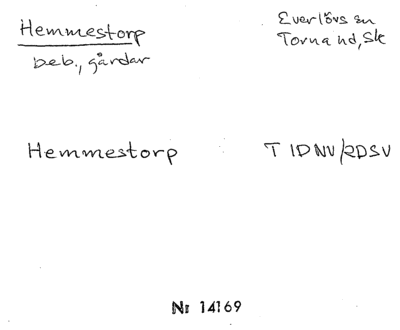 Hemmestorp
beb., gårdar
Everlövs sn
Torna hd, Sk
Hemmestorp T IDNV/2DSV
Nr 14169